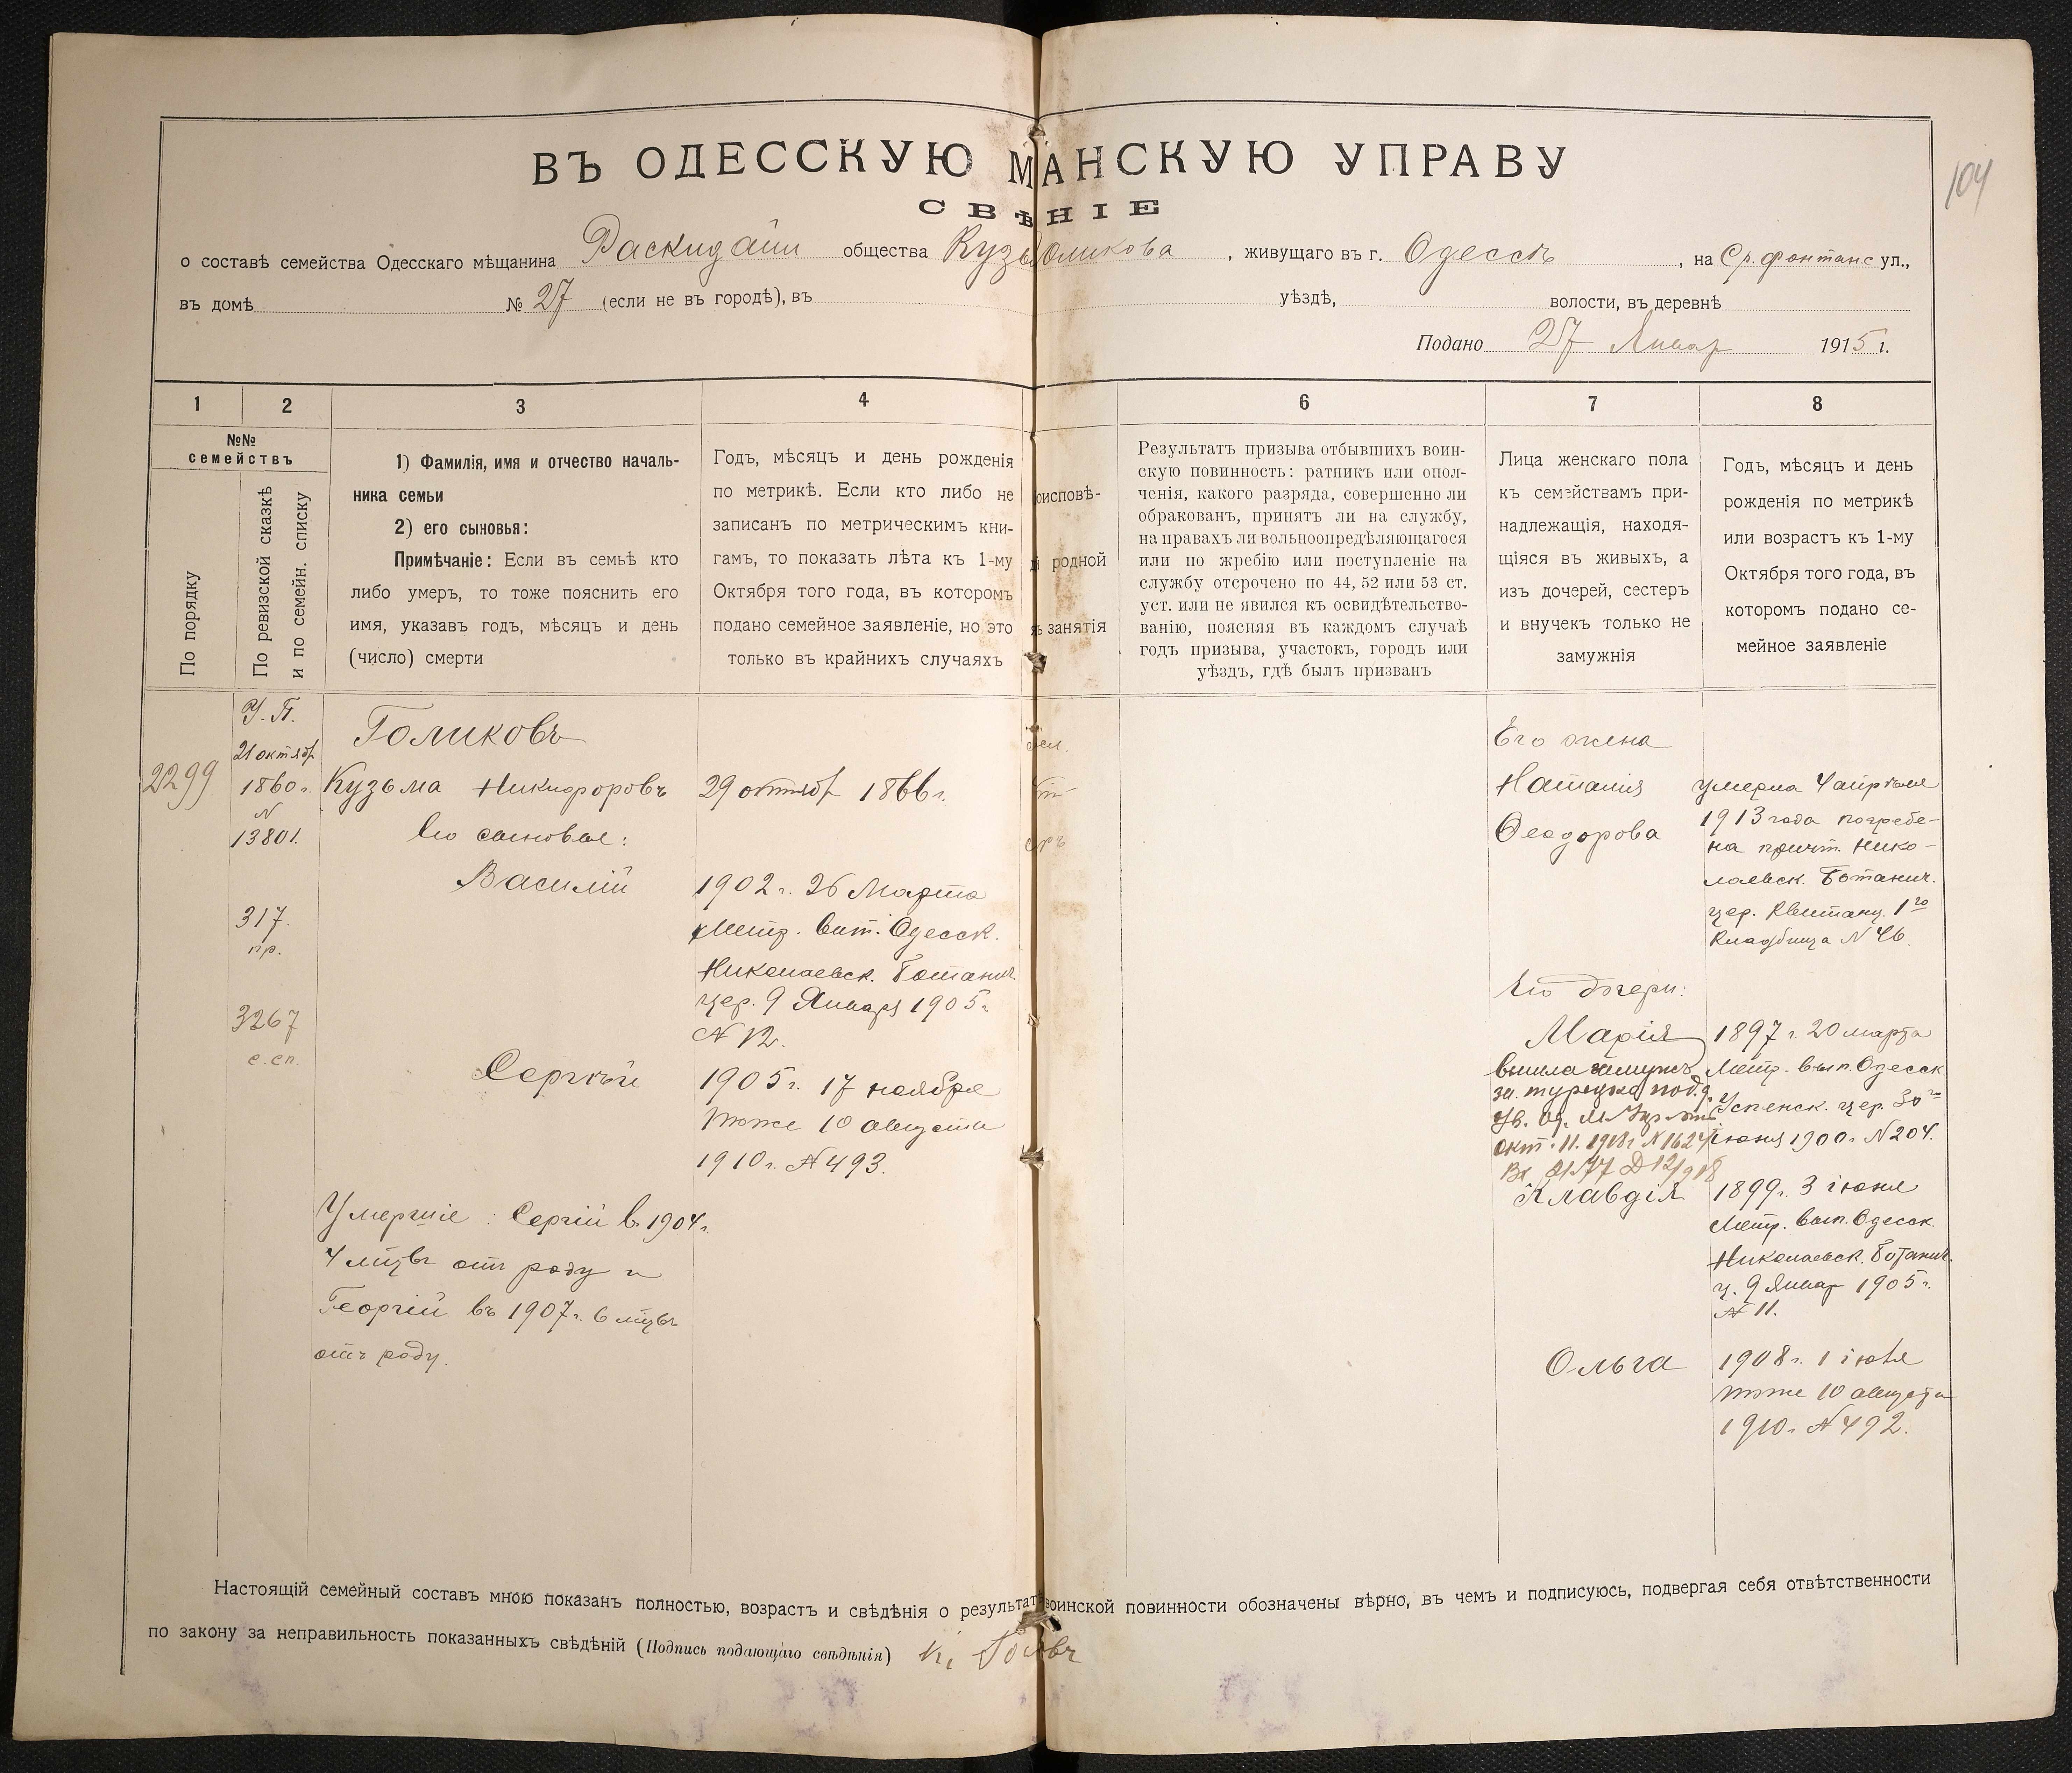 104
ВЪ ОДЕССКУЮ М АНСКУЮ УПРАВУ
СВѢ НІЕ
о составѣ семейства Одесскаго мѣщанина общества Кузь оликова , живущаго въ г. Одессѣ , на Ср. фонтанс ул.,
въ домѣ № 27 (если не въ городѣ), въ уѣздѣ, волости, въ деревнѣ
Подано 27 Январ 1915 г.
1 2 3 4 6 7 8
№№
семействъ
По порядку
По ревизской сказкѣ
и по семейн. списку
1) Фамилія, имя и отчество началь-
ника семьи
2) его сыновья:
Примѣчаніе: Если въ семьѣ кто
либо умеръ, то тоже пояснить его
имя, указавъ годъ, мѣсяцъ и день
(число) смерти
Годъ, мѣсяцъ и день рожденія
по метрикѣ. Если кто либо не
записанъ по метрическимъ кни-
гамъ, то показать лѣта къ 1-му
Октября того года, въ которомъ
подано семейное заявленіе, но это
только въ крайнихъ случаяхъ
оисповѣ-
й родной
ъ занятія
Результатъ призыва отбывшихъ воин-
скую повинность: ратникъ или опол-
ченія, какого разряда, совершенно ли
обракованъ, принятъ ли на службу,
на правахъ ли вольноопредѣляющагося
или по жребію или поступленіе на
службу отсрочено по 44, 52 или 53 ст.
уст. или не явился къ освидѣтельство-
ванію, поясняя въ каждомъ случаѣ
годъ призыва, участокъ, городъ или
уѣздъ, гдѣ былъ призванъ
Лица женскаго пола
къ семействамъ при-
надлежащія, находя-
щіяся въ живыхъ, а
изъ дочерей, сестеръ
и внучекъ только не
замужнія
Годъ, мѣсяцъ и день
рожденія по метрикѣ
или возрастъ къ 1-му
Октября того года, въ
которомъ подано се-
мейное заявленіе
2299
У. П.
21 октябр
1860 г.
N
13801.
317.
пр.
3267
с. сп.
Голиковъ
Кузьма Никифоровъ
Его сыновья:
Василій
Сергѣй
Умершіе: Сергій в. 1904 г.
4 мцвъ отъ роду и
Георгій въ 1907 г. 6 мцвъ
отъ роду.
29 октябр 1866 г.
1902 г. 26 Марта
Метр. вып. Одесск.
Николаевск. Ботанич
цер. 9 Января 1905 г
N 12.
1905 г. 17 ноября
тоже 10 августа
1910 г. N 493.
Его жена
Наталія
Феодорова
Его дочери:
Марія
вышла замужъ
за турецко под.
окт. 11. 1918 г N 1624
Клавдія
Ольга
умерла 4 апрѣля
1913 года погребе-
на причт. Нико-
лаевск. Ботанич.
цер. Квитанц. 1го
Кладбища N 46.
1897 г. 20 марта
Метр. вып. Одесск.
Успенск. цер. 30го
іюня 1900 г. N 204.
1899 г. 3 іюня
Метр. вып. Одесск.
Николаевск. Ботанич.
ц. 9 Январ 1905 г.
N 11.
1908 г. 1 іюля
тоже 10 августа
1910 г N 492.
Настоящій семейный составъ мною показанъ полностью, возрастъ и свѣдѣнія о результатѣ воинской повинности обозначены вѣрно, въ чемъ и подписуюсь, подвергая себя отвѣтственности
по закону за неправильность показанныхъ свѣдѣній (Подпись подающаго свѣдѣнія)